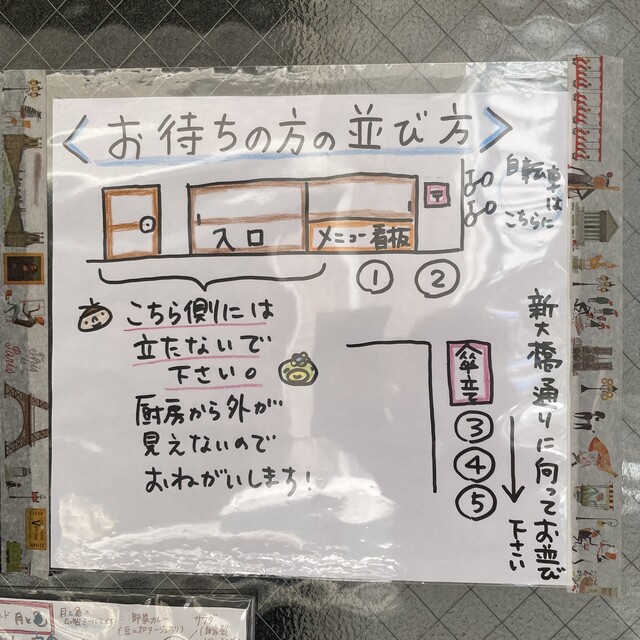 お待ちの方の並び方
入口
メニュー看板
〒
自転車は
こちらに
① ②
こちら側には
立たないで
下さい。
厨房から外が
見えないので
おねがいします!
傘立て
③
④
⑤
新大橋通りに向ってお並び
下さい